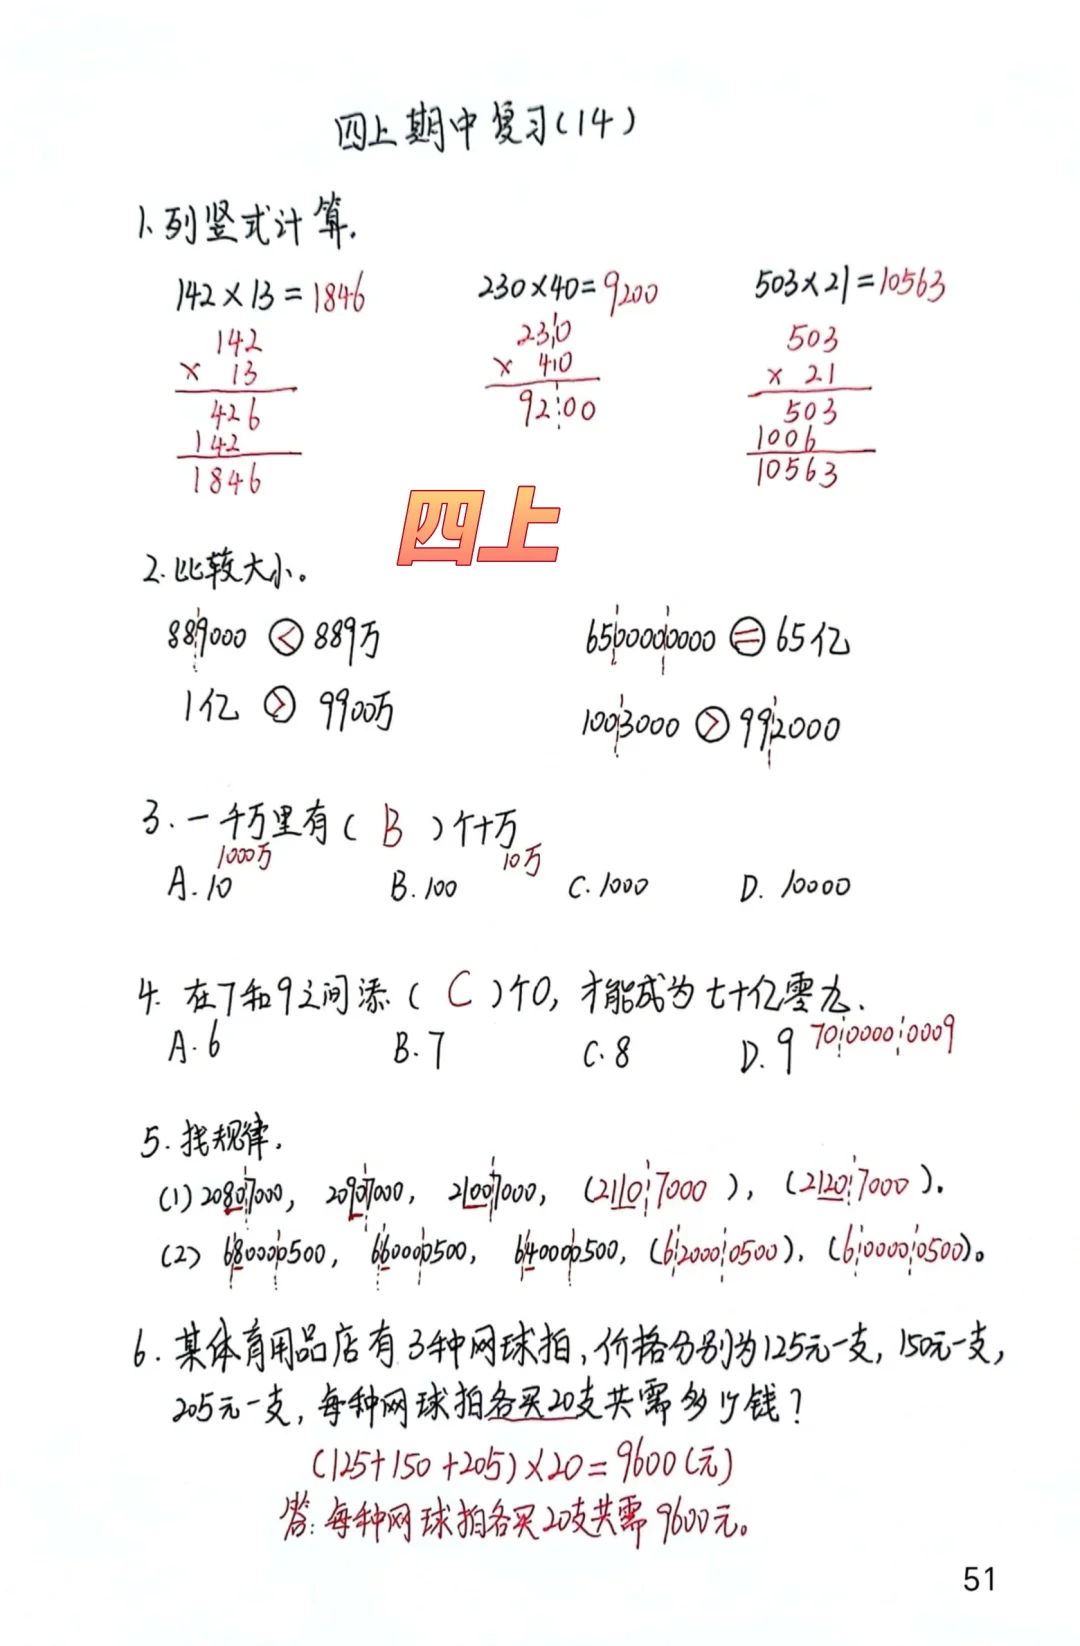 四上期中复习(14)
1.列竖式计算.
142×13=1846 230×40=9200 503×21=10563
142 230 503
× 13 × 40 × 21
426 9200 503
142 1006
1846 10563
四上
2.比较大小。
889000 < 889万 6500000000 = 65亿
1亿 > 9900万 1003000 > 992000
3.一千万里有( B )个十万
1000万 10万
A.10 B.100 C.1000 D.10000
4.在7和9之间添( C )个0,才能成为七十亿零九.
A.6 B.7 C.8 D.9 7000000009
5.找规律.
(1)20807000, 20907000, 21007000, (21107000), (21207000).
(2)680000500, 660000500, 640000500, (620000500), (600000500)。
6.某体育用品店有3种网球拍,价格分别为125元一支,150元一支,
205元一支,每种网球拍各买20支共需多少钱?
(125+150+205)×20=9600(元)
答:每种网球拍各买20支共需9600元。
51